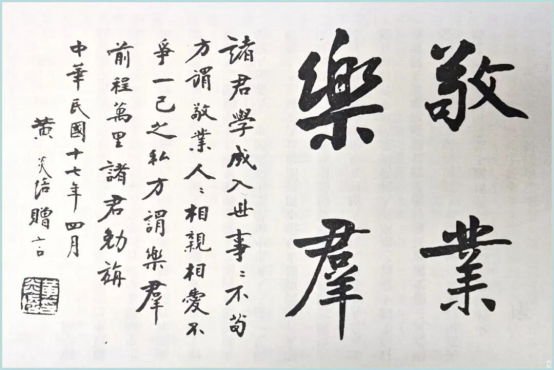 敬業
樂羣
諸君學成入世事〻不苟
方謂敬業人〻相親相愛不
爭一己之私方謂樂羣
前程萬里諸君勉旃
中華民國十七年四月
黄炎培贈言